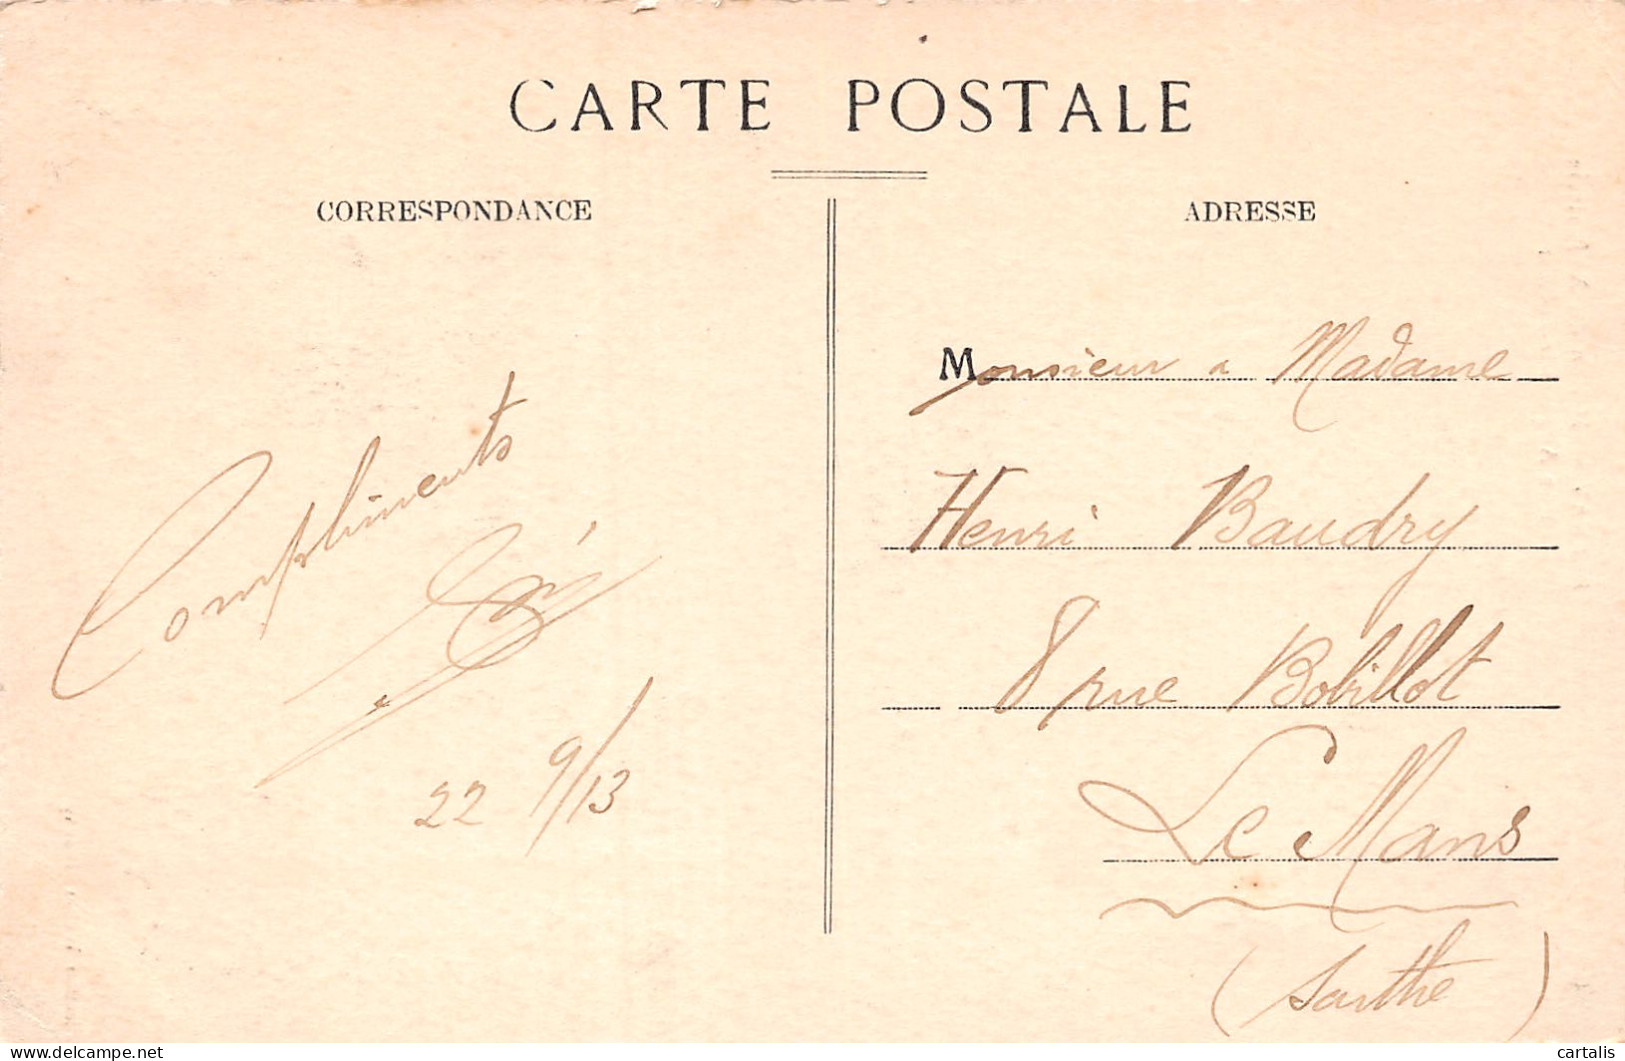 CARTE POSTALE
CORRESPONDANCE
Compliments
22 9/13
ADRESSE
Monsieur & Madame
Henri Baudry
8 rue Bobillot
Le Mans
(Sarthe)
delcampe.net
cartalis